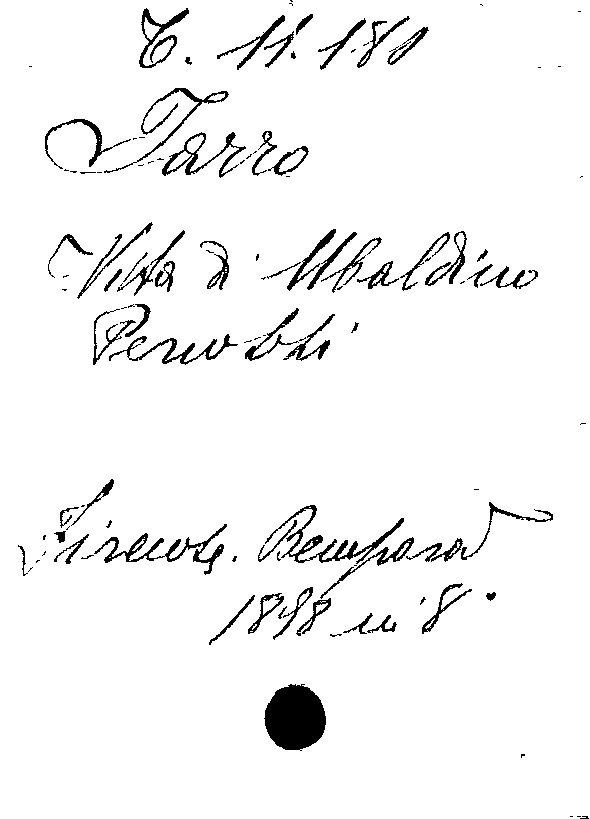 C. 11. 180
Jarro
Vita di Ubaldino
Peruzzi
Firenze. Bemporad
1898 in 8°